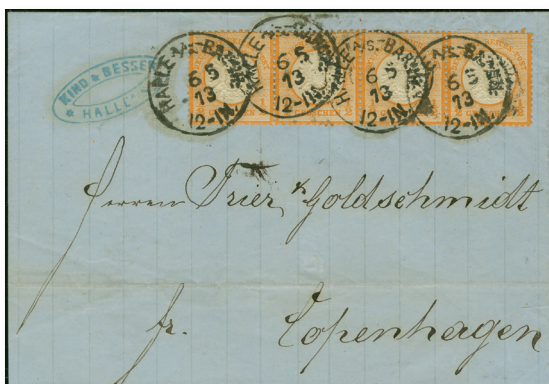 KIND & BESSER
* HALLE
HALLE A/S.-BAHNH.
6 5
73
12-1N.
HALLE
6 5
73
12-1N.
HALLE A/S.-BAHNH.
6 5
73
12-1N.
6 5
73
12-1N.
Herren Trier & Goldschmidt
fr. Copenhagen